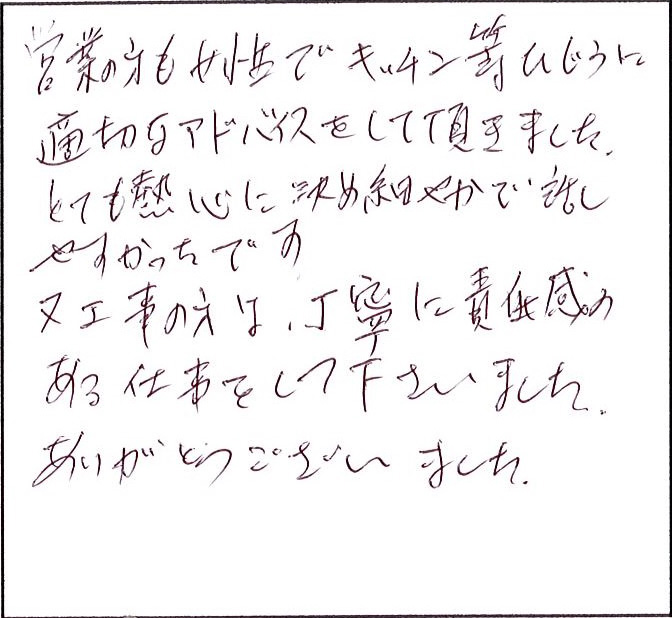 営業の方も女性でキッチン等ひじょうに
適切なアドバイスをして頂きました。
とても熱心に決め細やかで話し
やすかったです
又工事の方は、丁寧に責任感の
ある仕事をして下さいました。
ありがとうございました。